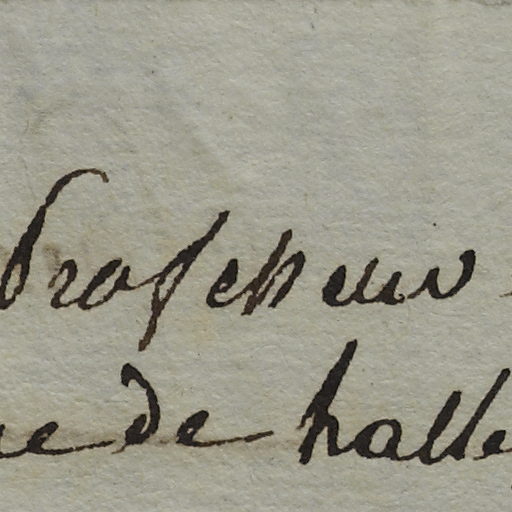 Professeur
ue de halle